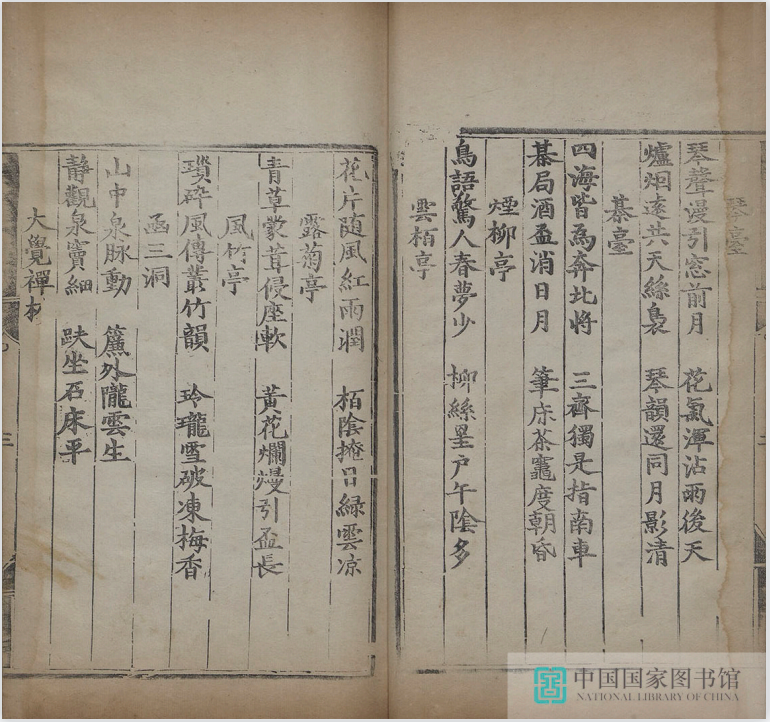 琴臺
琴聲謾引窓前月 花氣渾沾雨後天
爐烟遠共天絲裊 琴韻還同月影清
棊臺
四海皆爲奔北将 三齊獨是指南車
棊局酒盃消日月 筆床茶竈度朝昏
煙柳亭
鳥語驚人春夢少 柳絲垂户午陰多
雲栢亭
花片随風紅雨潤 栢陰掩日緑雲凉
露菊亭
青草蒙茸侵座軟 黄花爛熳引盃長
風竹亭
瑣碎風傳叢竹韻 玲瓏雪破凍梅香
函三洞
山中泉脉動 簾外隴雲生
静觀泉竇細 趺坐石床平
大覺禪
三
中国国家图书馆
NATIONAL LIBRARY OF CHINA